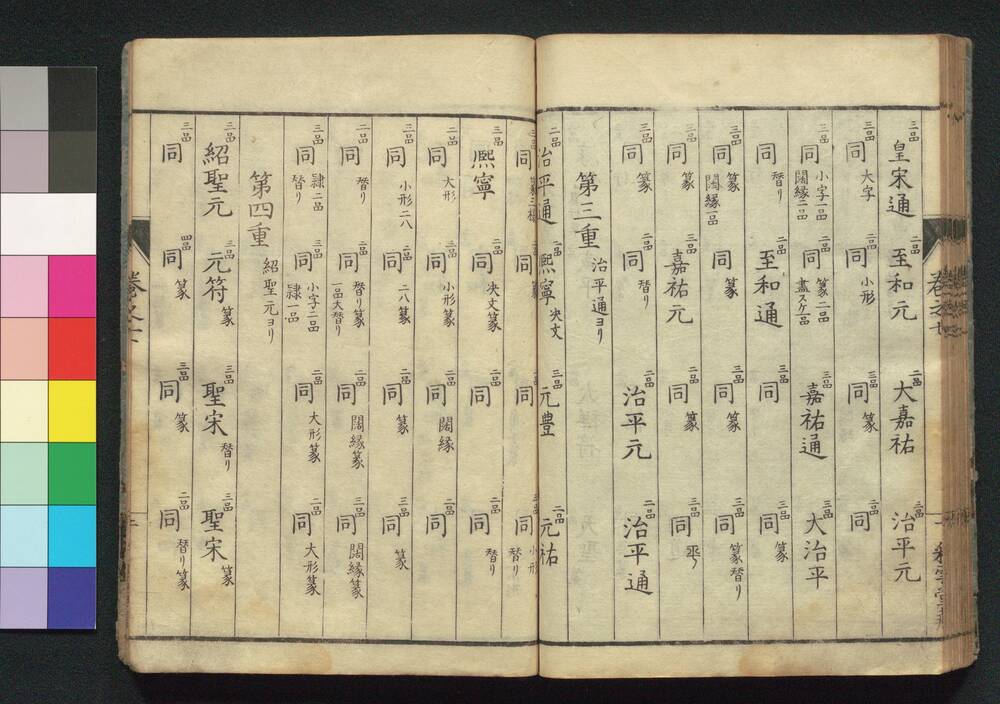 三品 皇宋通 二品 至和元 二品 大嘉祐 三品 治平元
三品 同 大字 同 小形 三品 同 篆 二品 同
三品 同 小字一品 闊縁二品 二品 同 篆二品 盡スケ一品 三品 嘉祐通 三品 大治平
三品 同 替り 至和通 三品 同 三品 同 篆
三品 同 篆 闊縁一品 同 篆 三品 同 篆 三品 同 篆替り
三品 同 篆 二品 嘉祐元 二品 同 篆 三品 同
三品 同 篆 二品 同 替り 二品 治平元 二品 治平通
第三重 治平通ヨリ
二品 治平通 二品 熙寧 决文 三品 元豊 二品 元祐
同 篆三様 同 篆 同 同 小形 替り
三品 熙寧 二品 同 决文篆 二品 同 二品 同 替り
二品 同 大形 三品 同 小形篆 二品 同 闊縁 二品 同
三品 同 小形二八 二品 同 二八篆 二品 同 篆 三品 同 篆
二品 同 替り 二品 同 替り篆 一品大替り 二品 同 闊縁篆 三品 同 闊縁篆
三品 同 隷二品 替り 三品 同 小字二品 隷一品 二品 同 大形篆 二品 同 大形篆
第四重 紹聖元ヨリ
二品 紹聖元 三品 元符 篆 三品 聖宋 替り 三品 聖宋 篆
三品 同 四品 同 篆 三品 同 篆 二品 同 替り篆